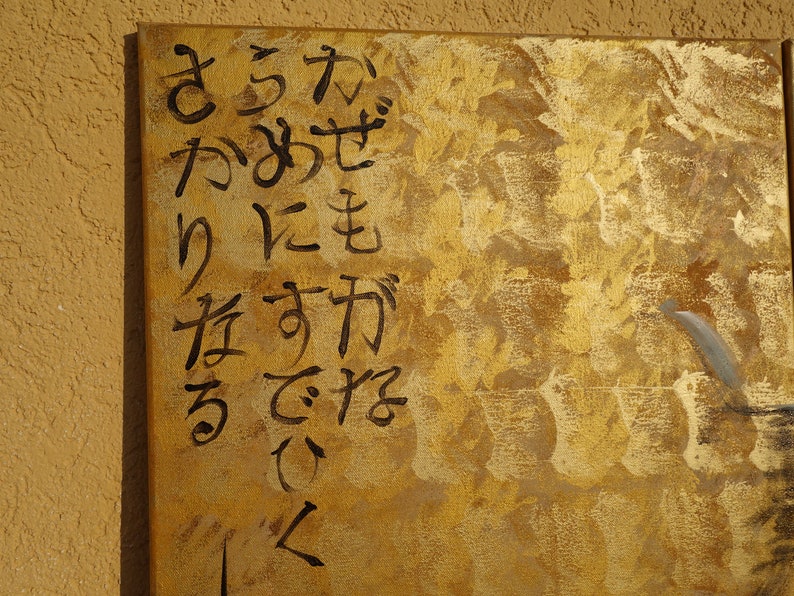 かぜもがな
うめにすでひく
さかりなる